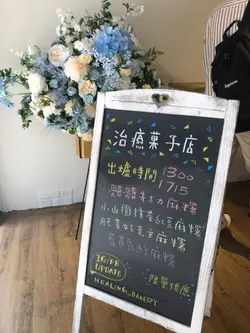 治癒菓子店
出爐時間 1300
1715
麻糬
小山園抹茶紅豆麻糬
麻糬
麻糬
IG/FB
UPDATE
限量供應
HEALING_BAKERY